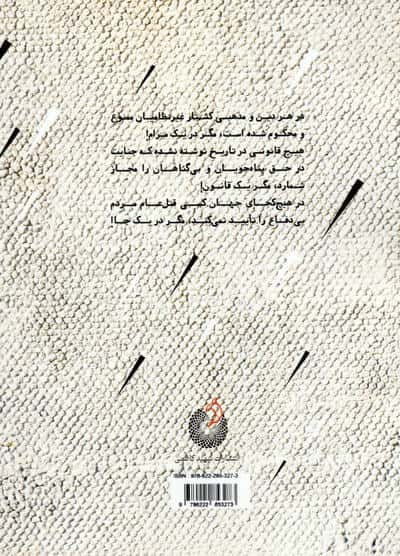 در هر دین و مذهبی کشتار غیرنظامیان ممنوع
و محکوم شده است، مگر در یک مرام!
هیچ قانونی در تاریخ نوشته نشده که جنایت
در حق پناه‌جویان و بی‌گناهان را مجاز
شمارد، مگر یک قانون!
در هیچ‌کجای جهان کسی قتل‌عام مردم
بی‌دفاع را تأیید نمی‌کند، مگر در یک جا!
انتشارات شهید کاظمی